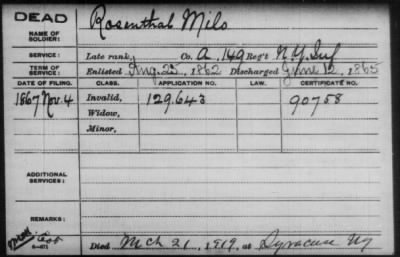 DEAD
NAME OF SOLDIER: Rosenthal Milo
SERVICE: Late rank, Co. A, 149 Reg't N.Y. Inf
TERM OF SERVICE: Enlisted Aug. 25, 1862 Discharged June 12, 1865
DATE OF FILING. CLASS. APPLICATION NO. LAW. CERTIFICATE NO.
1867 Nov. 4 Invalid, 129.643 90758
Widow,
Minor,
ADDITIONAL SERVICES:
REMARKS:
Died Mch 21, 1919, at Syracuse NY